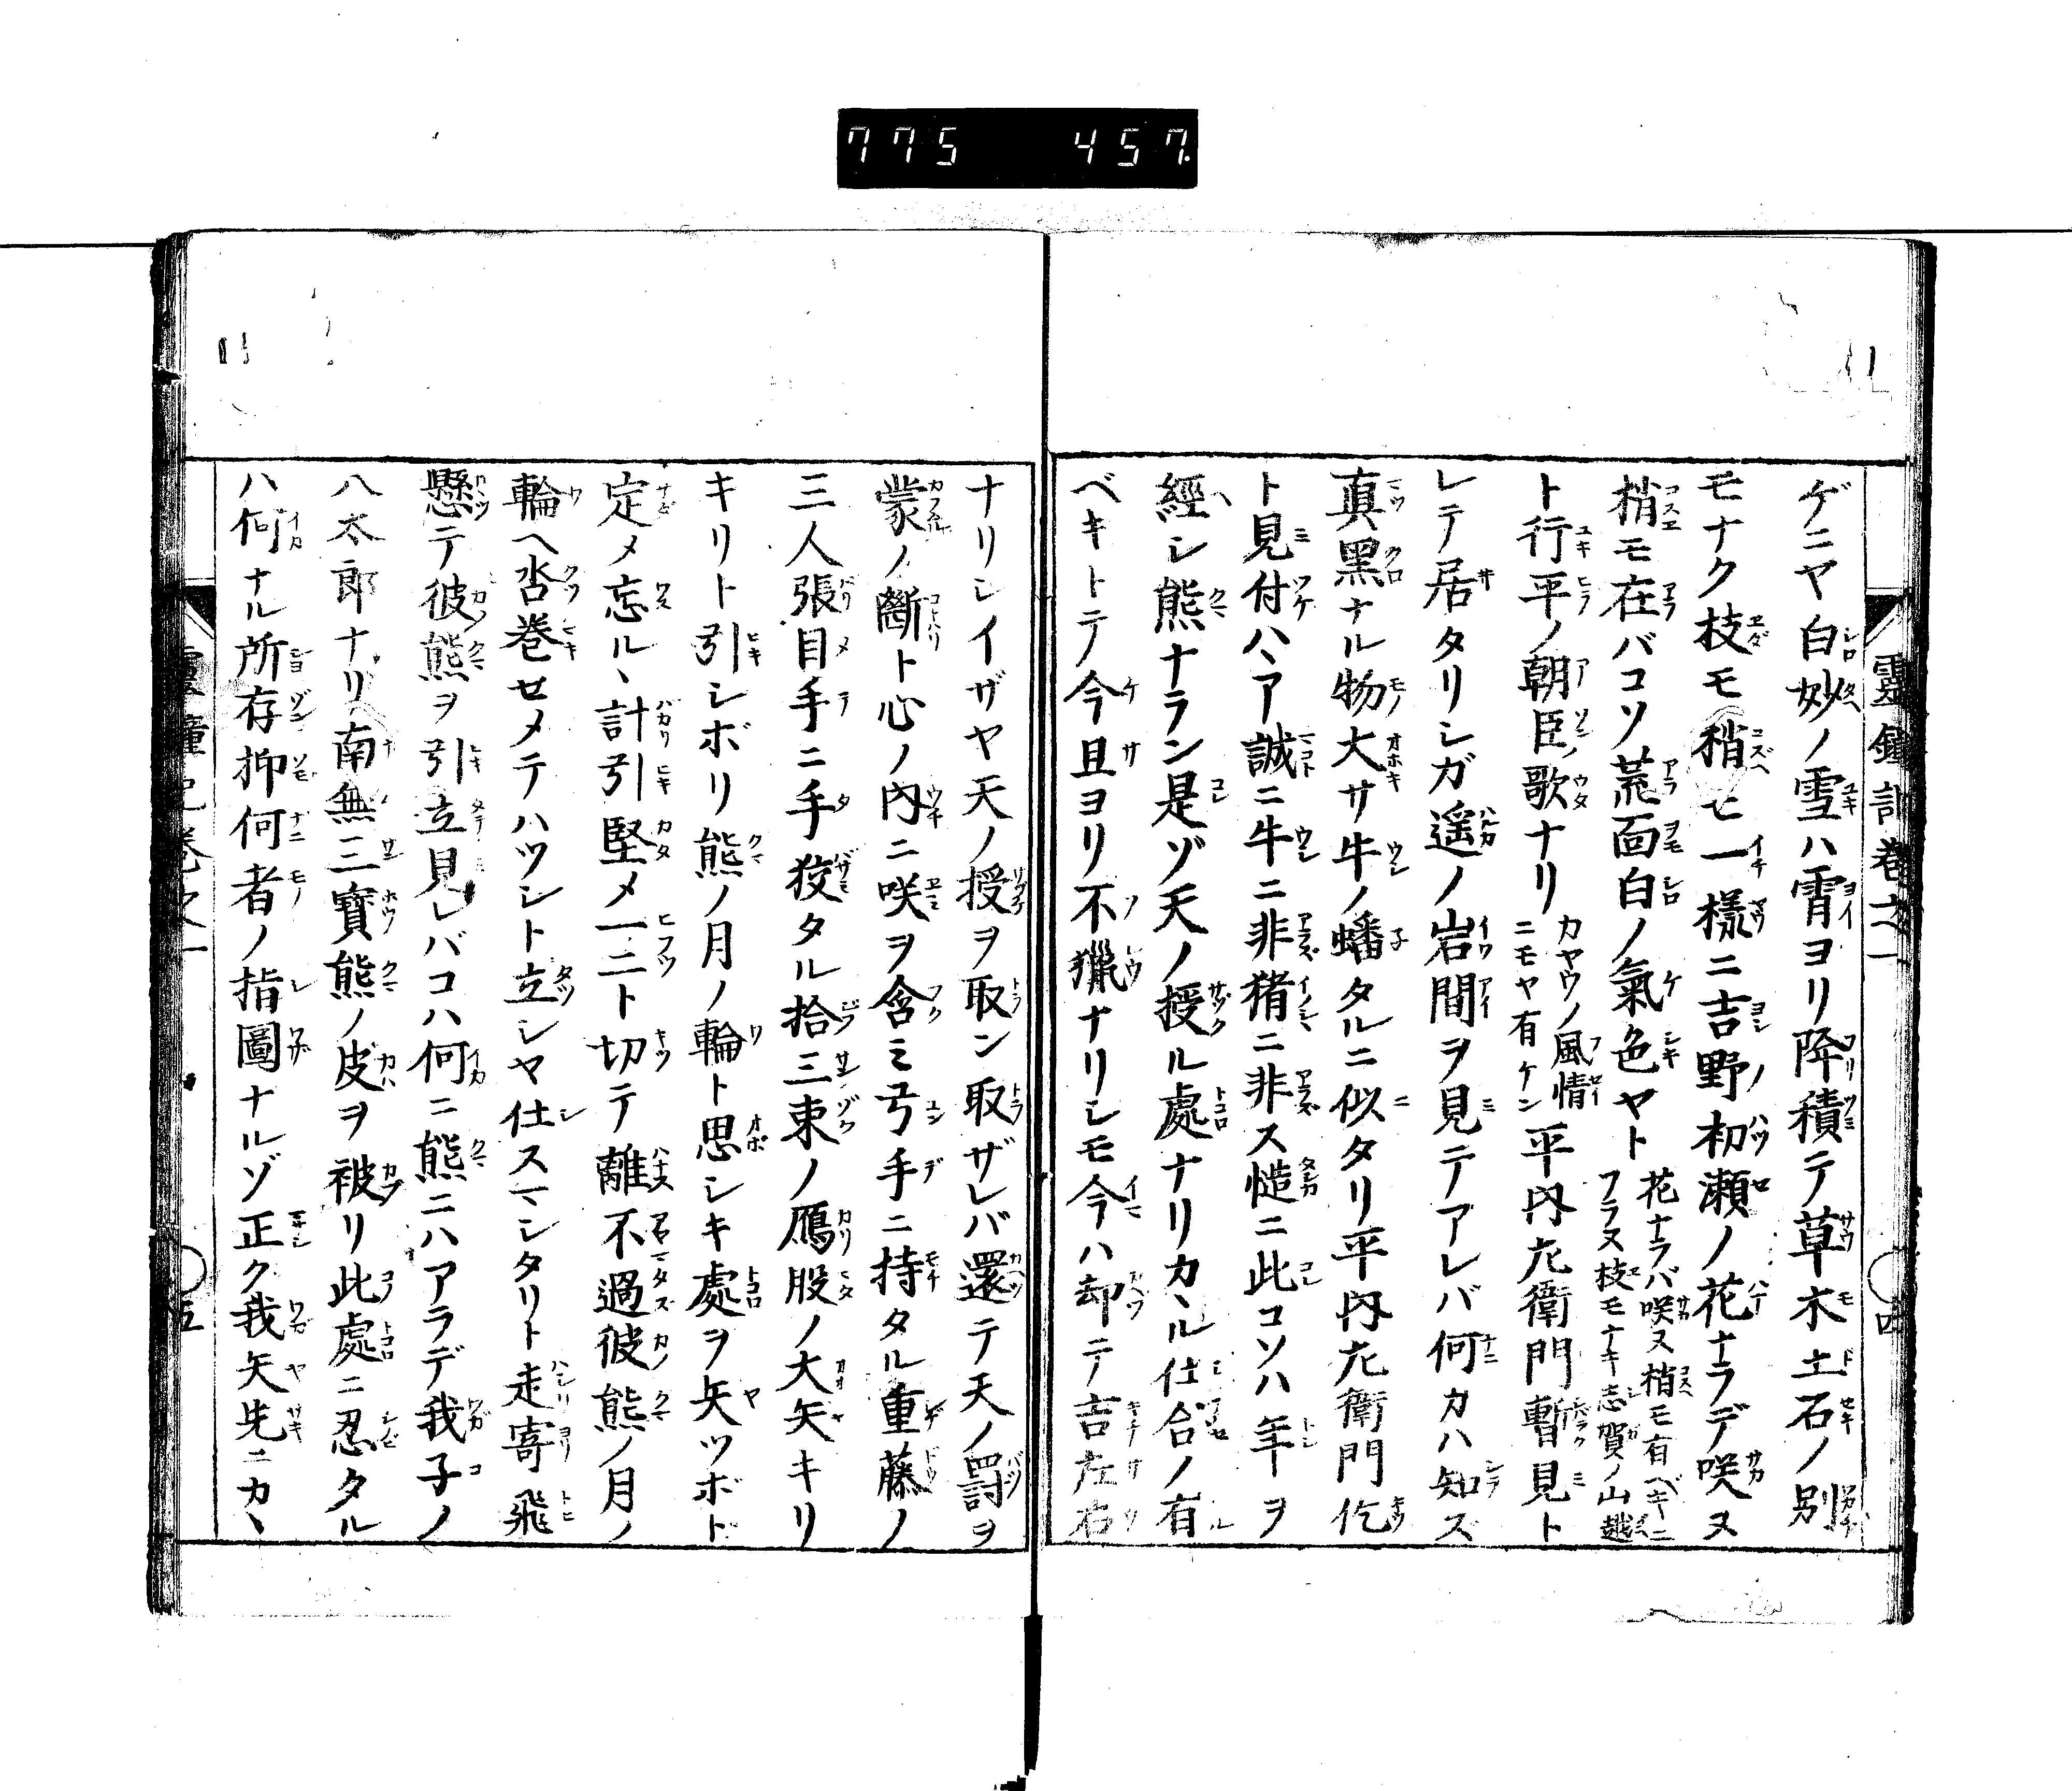 775 457
靈鐘記卷之一
四
ゲニヤ白妙ノ雪ハ霄ヨリ降積テ草木土石ノ別
モナク枝モ稍ヒ一樣ニ吉野初瀬ノ花ナラデ咲ヌ
梢モ在バコソ荒面白ノ氣色ヤト 花ナラバ咲ヌ梢モ有ベキニ フラヌ枝モナキ志賀ノ山越
ト行平ノ朝臣ノ歌ナリ カヤウノ風情 ニモヤ有ケン 平内左衛門暫見ト
レテ居タリシガ遥ノ岩間ヲ見テアレバ何カハ知ズ
真黒ナル物大サ牛ノ蟠タルニ似タリ平内左衛門仡
ト見付ハヽア誠ニ牛ニ非猪ニ非ス慥ニ此コソハ年ヲ
經シ熊ナラン是ゾ天ノ授ル處ナリカヽル仕合ノ有
ベキトテ今且ヨリ不獵ナリシモ今ハ却テ吉左右
ナリシイザヤ天ノ授ヲ取ン取ザレバ還テ天ノ罸ヲ
蒙ノ斷ト心ノ内ニ咲ヲ含ミ弓手ニ持タル重藤ノ
三人張目手ニ手挾タル拾三束ノ鴈股ノ大矢キリ
キリト引シボリ熊ノ月ノ輪ト思シキ處ヲ矢ツボト
定メ忘ルヽ計引堅メ一二ト切テ離不過彼熊ノ月ノ
輪ヘ沓巻セメテハツシト立シヤ仕スマシタリト走寄飛
懸テ彼熊ヲ引立見レバコハ何ニ熊ニハアラデ我子ノ
八太郎ナリ南無三寶熊ノ皮ヲ被リ此處ニ忍タル
ハ何ナル所存抑何者ノ指圖ナルゾ正ク我矢先ニカヽ
五